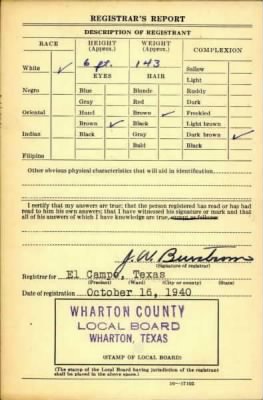 REGISTRAR'S REPORT
DESCRIPTION OF REGISTRANT
RACE HEIGHT (Approx.) WEIGHT (Approx.) COMPLEXION
White ✓ 6 ft. 143 Sallow
EYES HAIR Light
Negro Blue Blonde Ruddy
Gray Red Dark
Oriental Hazel Brown ✓ Freckled
Brown ✓ Black Light brown
Indian Black Gray Dark brown ✓
Bald Black
Filipino
Other obvious physical characteristics that will aid in identification
I certify that my answers are true; that the person registered has read or has had
read to him his own answers; that I have witnessed his signature or mark and that
all of his answers of which I have knowledge are true, except as follows:
J. W. Burstrom
(Signature of registrar)
Registrar for El Campo, Texas
(Precinct) (Ward) (City or county) (State)
Date of registration October 16, 1940
WHARTON COUNTY
LOCAL BOARD
WHARTON, TEXAS
(STAMP OF LOCAL BOARD)
(The stamp of the Local Board having jurisdiction of the registrant
shall be placed in the above space.)